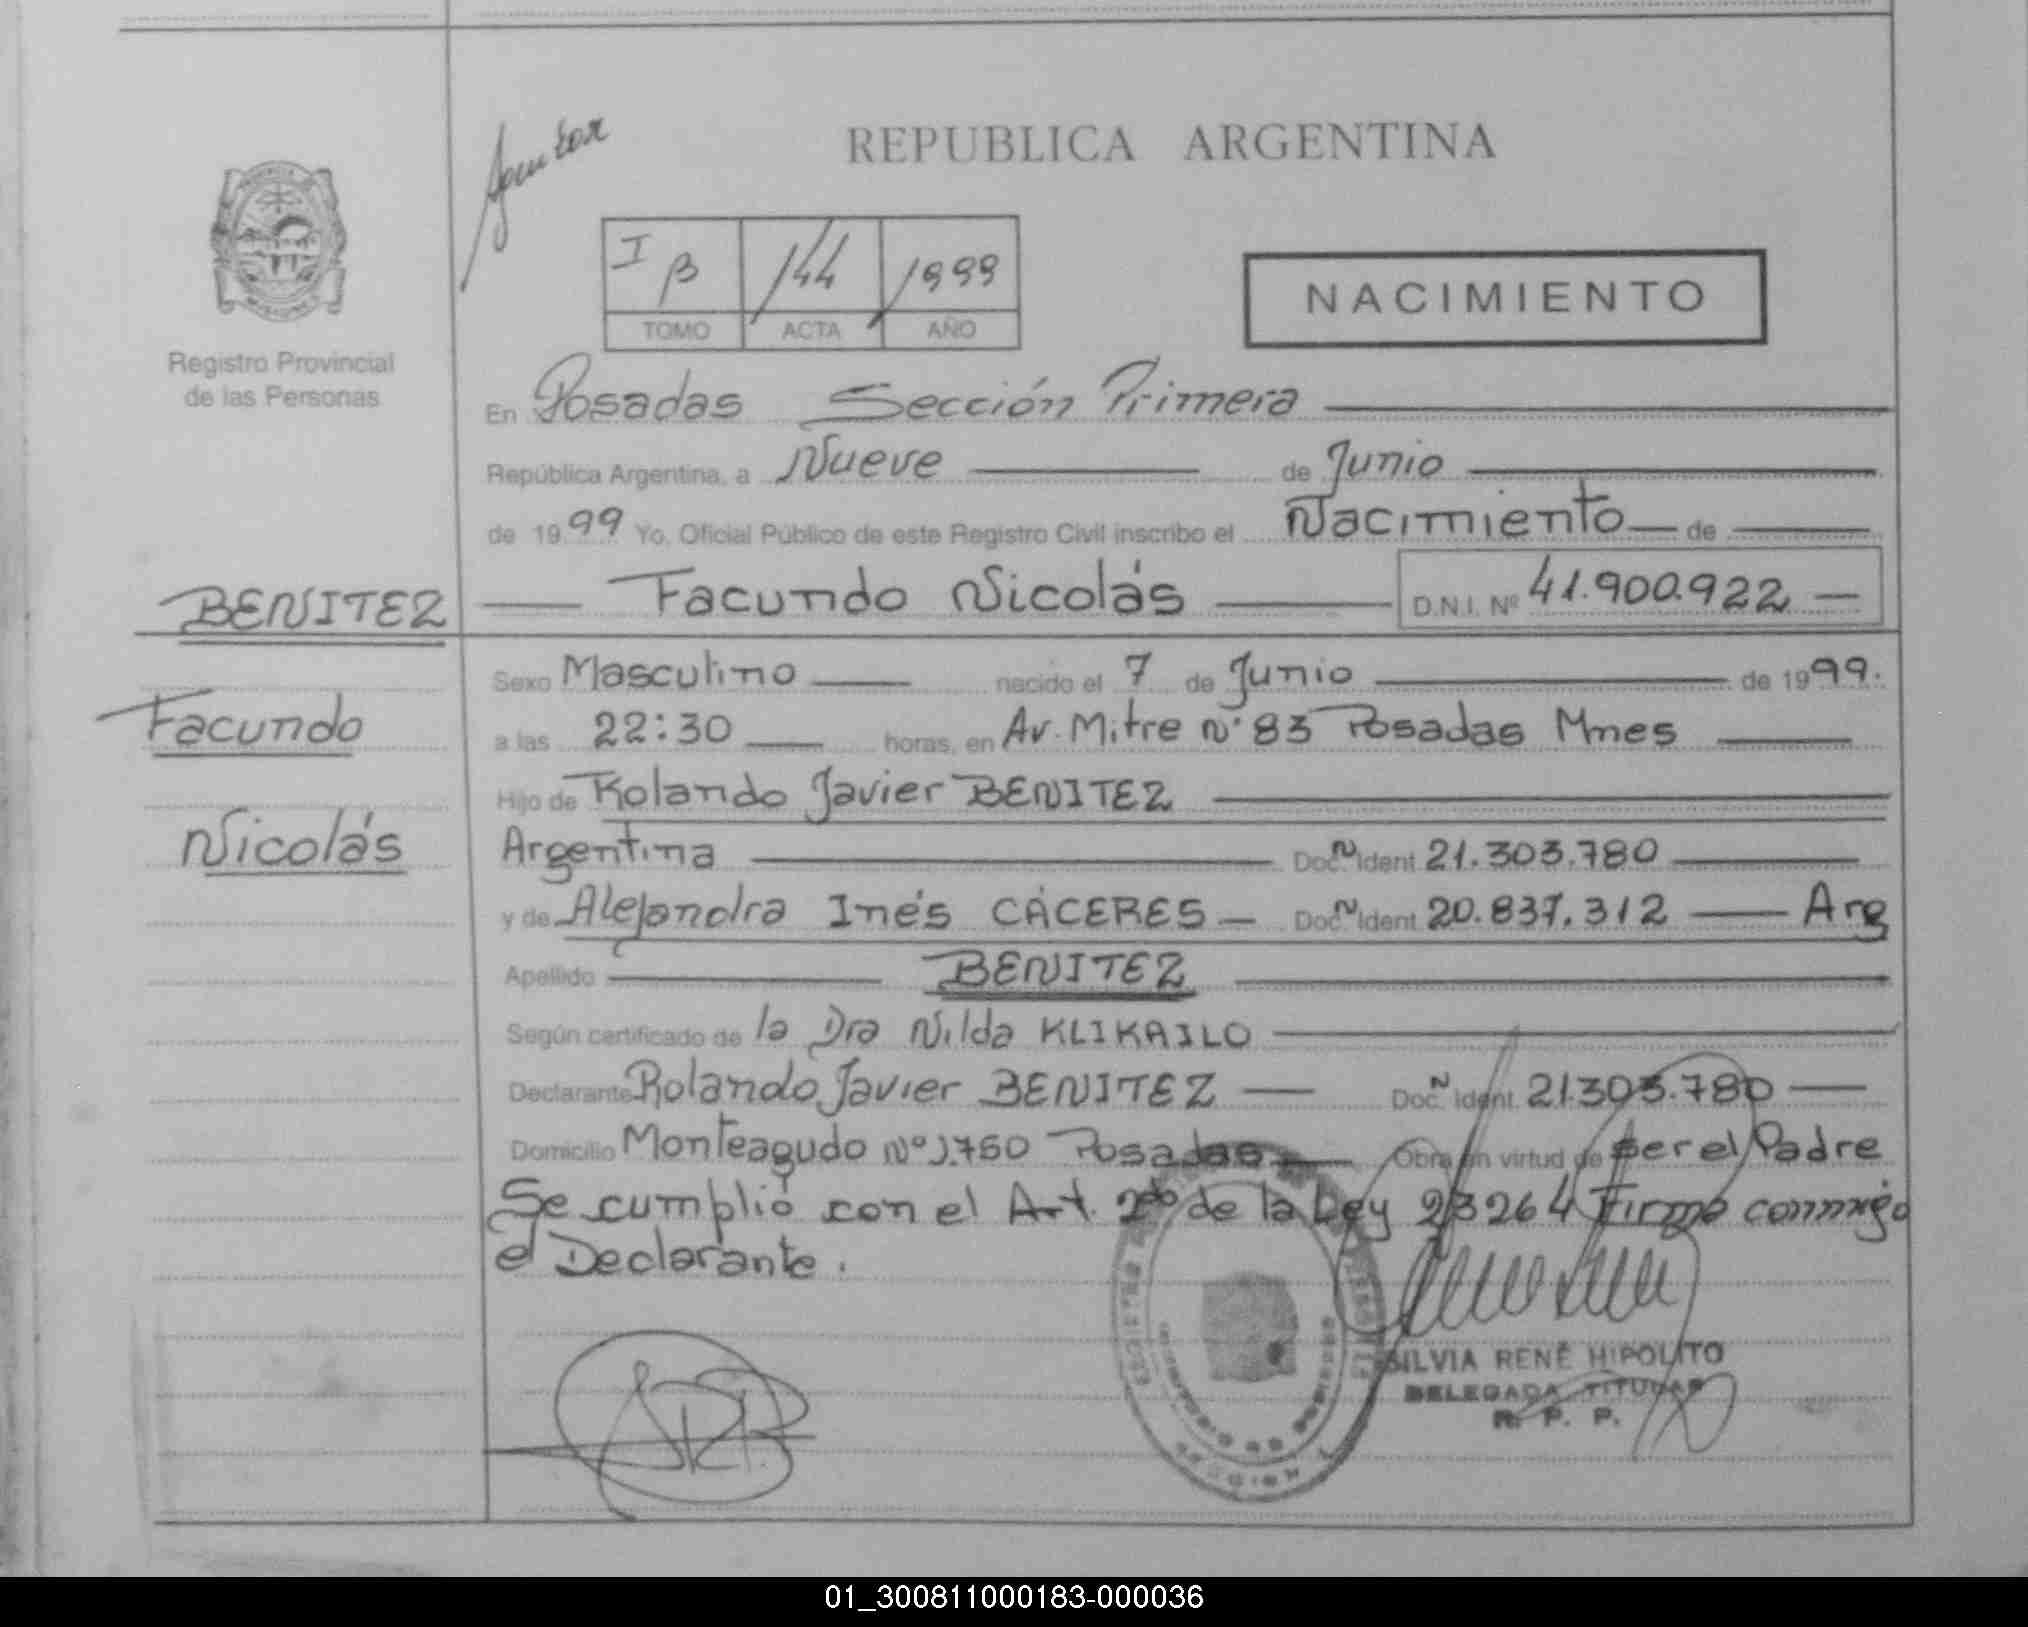 REPUBLICA ARGENTINA
I B 144 1999
TOMO ACTA AÑO
NACIMIENTO
Registro Provincial
de las Personas
En Posadas Sección Primera
República Argentina, a Nueve de Junio
de 1999 Yo, Oficial Público de este Registro Civil inscribo el Nacimiento de
Facundo Nicolás D.N.I. Nº 41.900.922
BENITEZ
Facundo
Nicolás
Sexo Masculino nacido el 7 de Junio de 1999.
a las 22:30 horas, en Av. Mitre Nº 83 Posadas Mnes
Hijo de Rolando Javier BENITEZ
Argentina Doc. N Ident 21.303.780
y de Alejandra Inés CÁCERES Doc. N Ident 20.837.312 Arg
Apellido BENITEZ
Según certificado de la Dra Nilda KLIKAILO
Declarante Rolando Javier BENITEZ Doc. N Ident. 21.303.780
Domicilio Monteagudo Nº 1.750 Posadas Obra en virtud de ser el Padre
Se cumplió con el Art. 2do de la Ley 23264 Firma conmigo
el Declarante.
SILVIA RENÉ HIPOLITO
DELEGADA TITULAR
R. P. P.
01_300811000183-000036